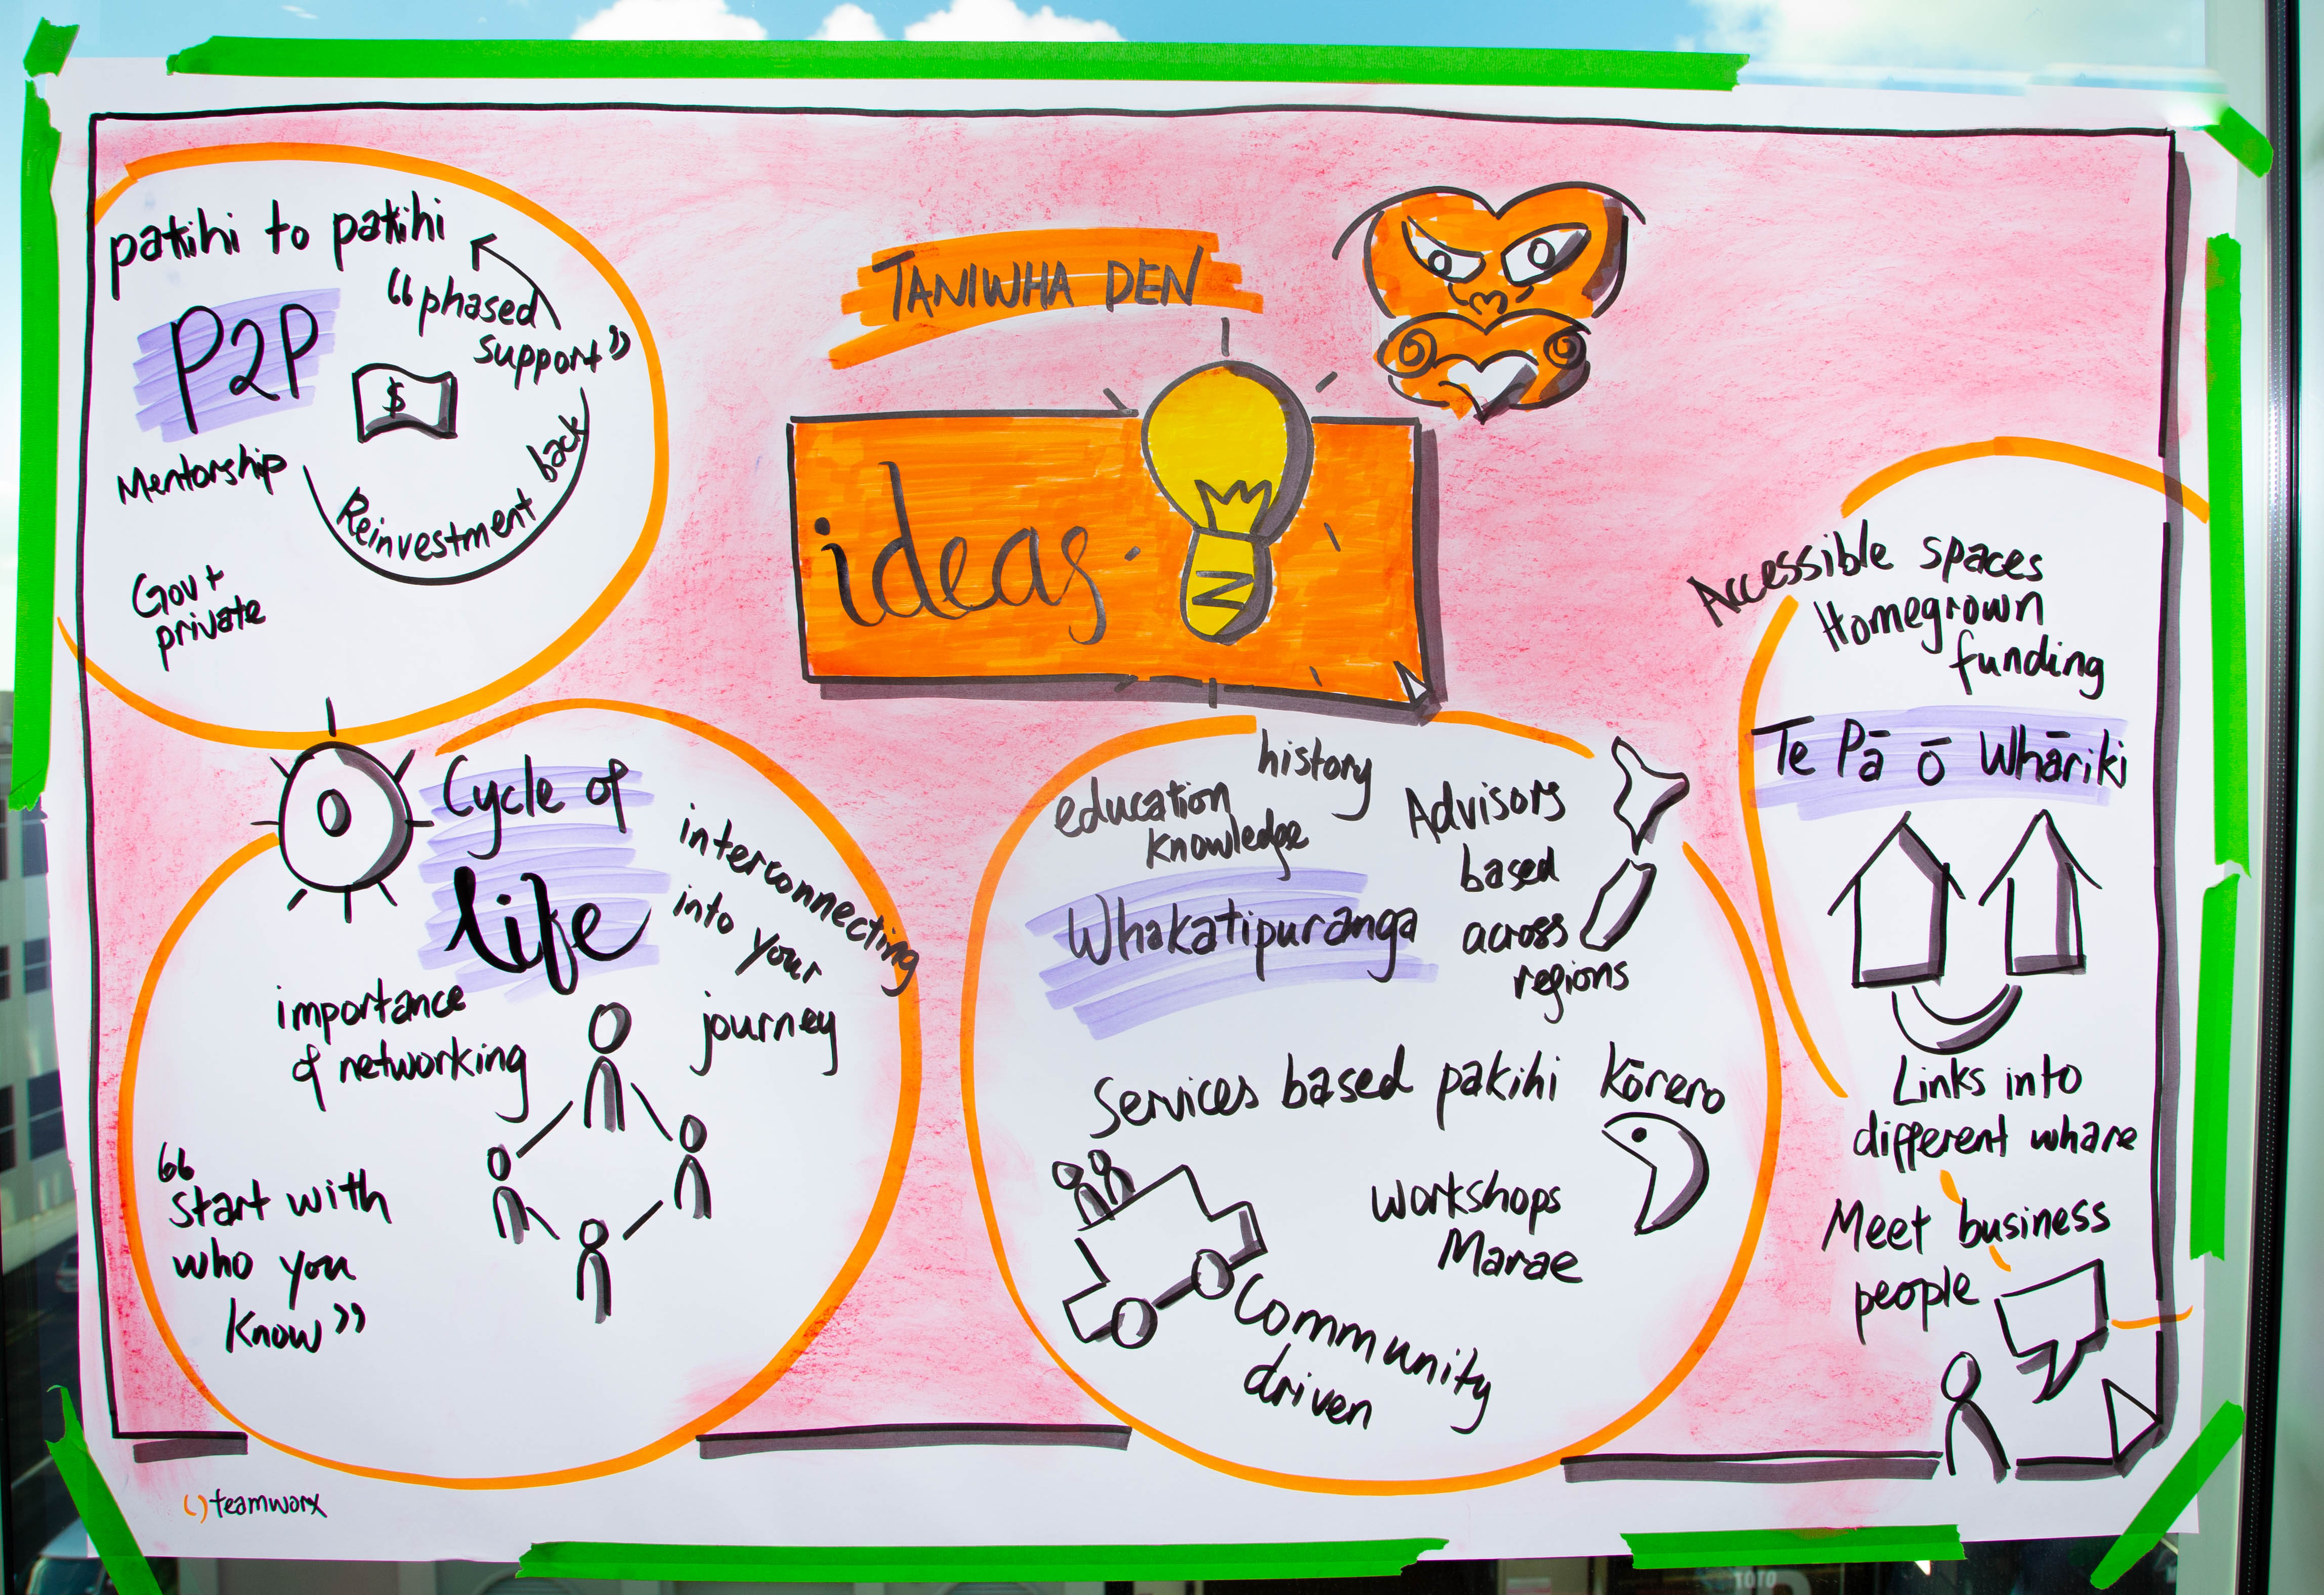 TANIWHA DEN
ideas.
pakihi to pakihi
P2P
"phased
support"
$
Mentorship
Reinvestment back
Gov +
private
Cycle of
life
interconnecting
into your
journey
importance
of networking
"Start with
who you
know"
history
education
knowledge
Whakatipuranga
Advisors
based
across
regions
Services based pakihi
Kōrero
workshops
Marae
Community
driven
Accessible spaces
Homegrown
funding
Te Pā ō Whāriki
Links into
different whare
Meet business
people
teamworx